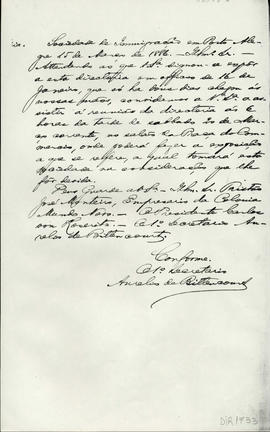 Sociedade de Immigração em Porto Ale-
gre 15 de Março de 1886. - Illmo. Sr. -
Attendendo ao que V.Sa. dignou-se expôr
a esta directoria em officio de 16 de
Janeiro, que só ha dias chegou ás
nossas mãos, convidamos a V.Sa. a as-
sistir á reunião da directoria ás 6
horas da tarde de sabbado 20 de Mar-
ço corrente, no salão da Praça do Com-
mercio, onde poderá fazer a exposição
a que se refere, a qual tomará esta
Sociedade na consideração que lhe
fôr devida.
Deus Guarde a V.Sa. - Illmo. Sr. Tristão
José Monteiro, Empresario da Colonia
Mundo Novo. - O Presidente Carlos
von Koseritz. - O 1º Secretario Au-
relio de Bittencourt.
Conforme.
O 1º Secretario
Aurelio de Bittencourt
DIR/933